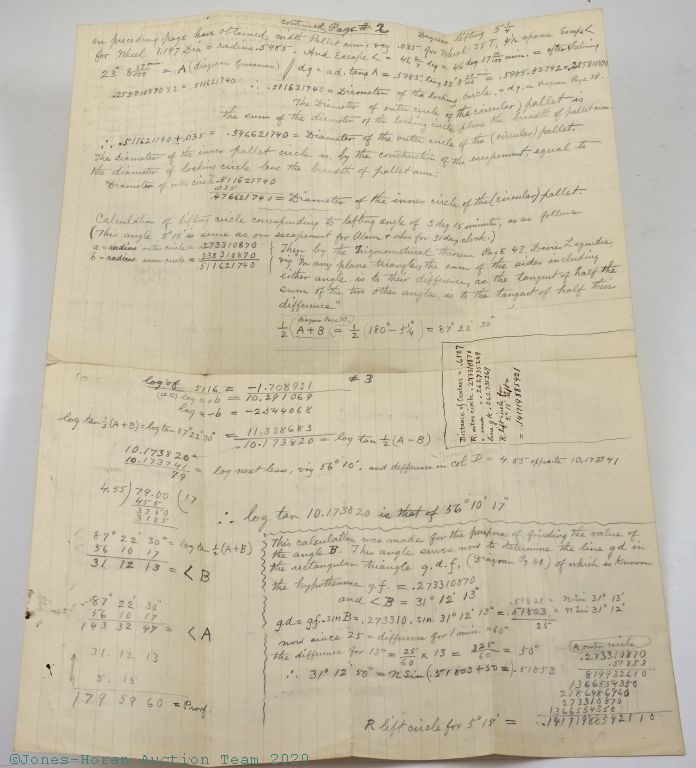 continued Page # 2
on preceding page have obtained, width Pallet arm, viz .035 for Wheel 35 T, 4½ spaces Escape <
Degrees lifting 5¼
for Wheel 1.197 Dia = radius .5985. And Escape < = 46 2/7 deg = 46 deg 17 min = after halving
23° 8 = A (diagram Grossman) / dg = ad. tang A = .5985. tang 23° 8 = .5985 .42742 = .255810870
.255810870 x 2 = .511621740 ∴ .511621740 = Diameter of the locking circle. = dg, in Diagram Page 28.
The Diameter of outer circle of the (circular) pallet is
the sum of the diameter of the locking circle plus the breadth of pallet arm.
∴ .511621740 + .035 = .546621740 = Diameter of the outer circle of the (circular) pallet.
The diameter of the inner pallet circle is, by the construction of the escapement, equal to
the diameter of locking circle less the breadth of pallet arm:
Diameter of outer circle .511621740
.035
.476621740 = Diameter of the inner circle of the (circular) pallet
Calculation of lifting circle corresponding to lifting angle of 5 deg 15 minutes, is as follows
(This angle 5° 15' is same as on escapement for Alarm & also for 31 day clock.)
a = radius outer circle = .273310870
b = radius inner circle = .238310870
.511621740
Then by the Trigonometrical theorem Page 43. Davies Legendre
viz "In any plane triangle, the sum of the sides including
either angle, is to their difference, as the tangent of half the
sum of the two other angles, is to the tangent of half their
difference"
(diagram Page 30)
½ (A+B) = ½ (180° - 5¼°) = 87° 22' 30"
# 3
log of 5116 = -1.708931
(ac) log a+b = 10.291069
log a-b = -2.544068
log tan ½(A+B) = log tan 87° 22' 30" = 11.338683
10.173820 = log tan ½ (A-B)
10.173820
10.173741 = log next less, viz 56° 10', and difference in col D = 4.55 opposite 10.173741
79
4.55) 79.00 (17
455
3350
3185
∴ log tan 10.173820 is that of 56° 10' 17"
Distance of Centers = .6107
R outer circle .273310870
R lift circle for
5° 15' lift
= .141719885421
87° 22' 30" = log tan ½ (A+B)
56 10 17
31 12 13 = < B
87° 22' 30"
56 10 17
143 32 47 = < A
31. 12 13
5. 15
179 59 60 = Proof.
This calculation was made for the purpose of finding the value of
the angle B. This angle serves now to determine the line gd in
the rectangular triangle g.d.f, (Diagram Pg 31) of which is known
the hypothenuse gf = .273310870
and < B = 31° 12' 13"
gd = gf. sin B = .273310. sin. 31° 12' 13" =
.51828 = N Sin 31° 13'
.51803 = N Sin 31° 12'
25
now since 25 = difference for 1 min. = 60"
the difference for 13" = 25/60 x 13 = 325/60 = 50"
∴ 31° 12' 50" = N Sin (.51803 + 50 = .51853
R outer circle
.273310870
.51853
819932610
1366554350
2186486960
273310870
1366554350
.14171988542110
R lift circle for 5° 15' =
©Jones-Horan Auction Team 2020